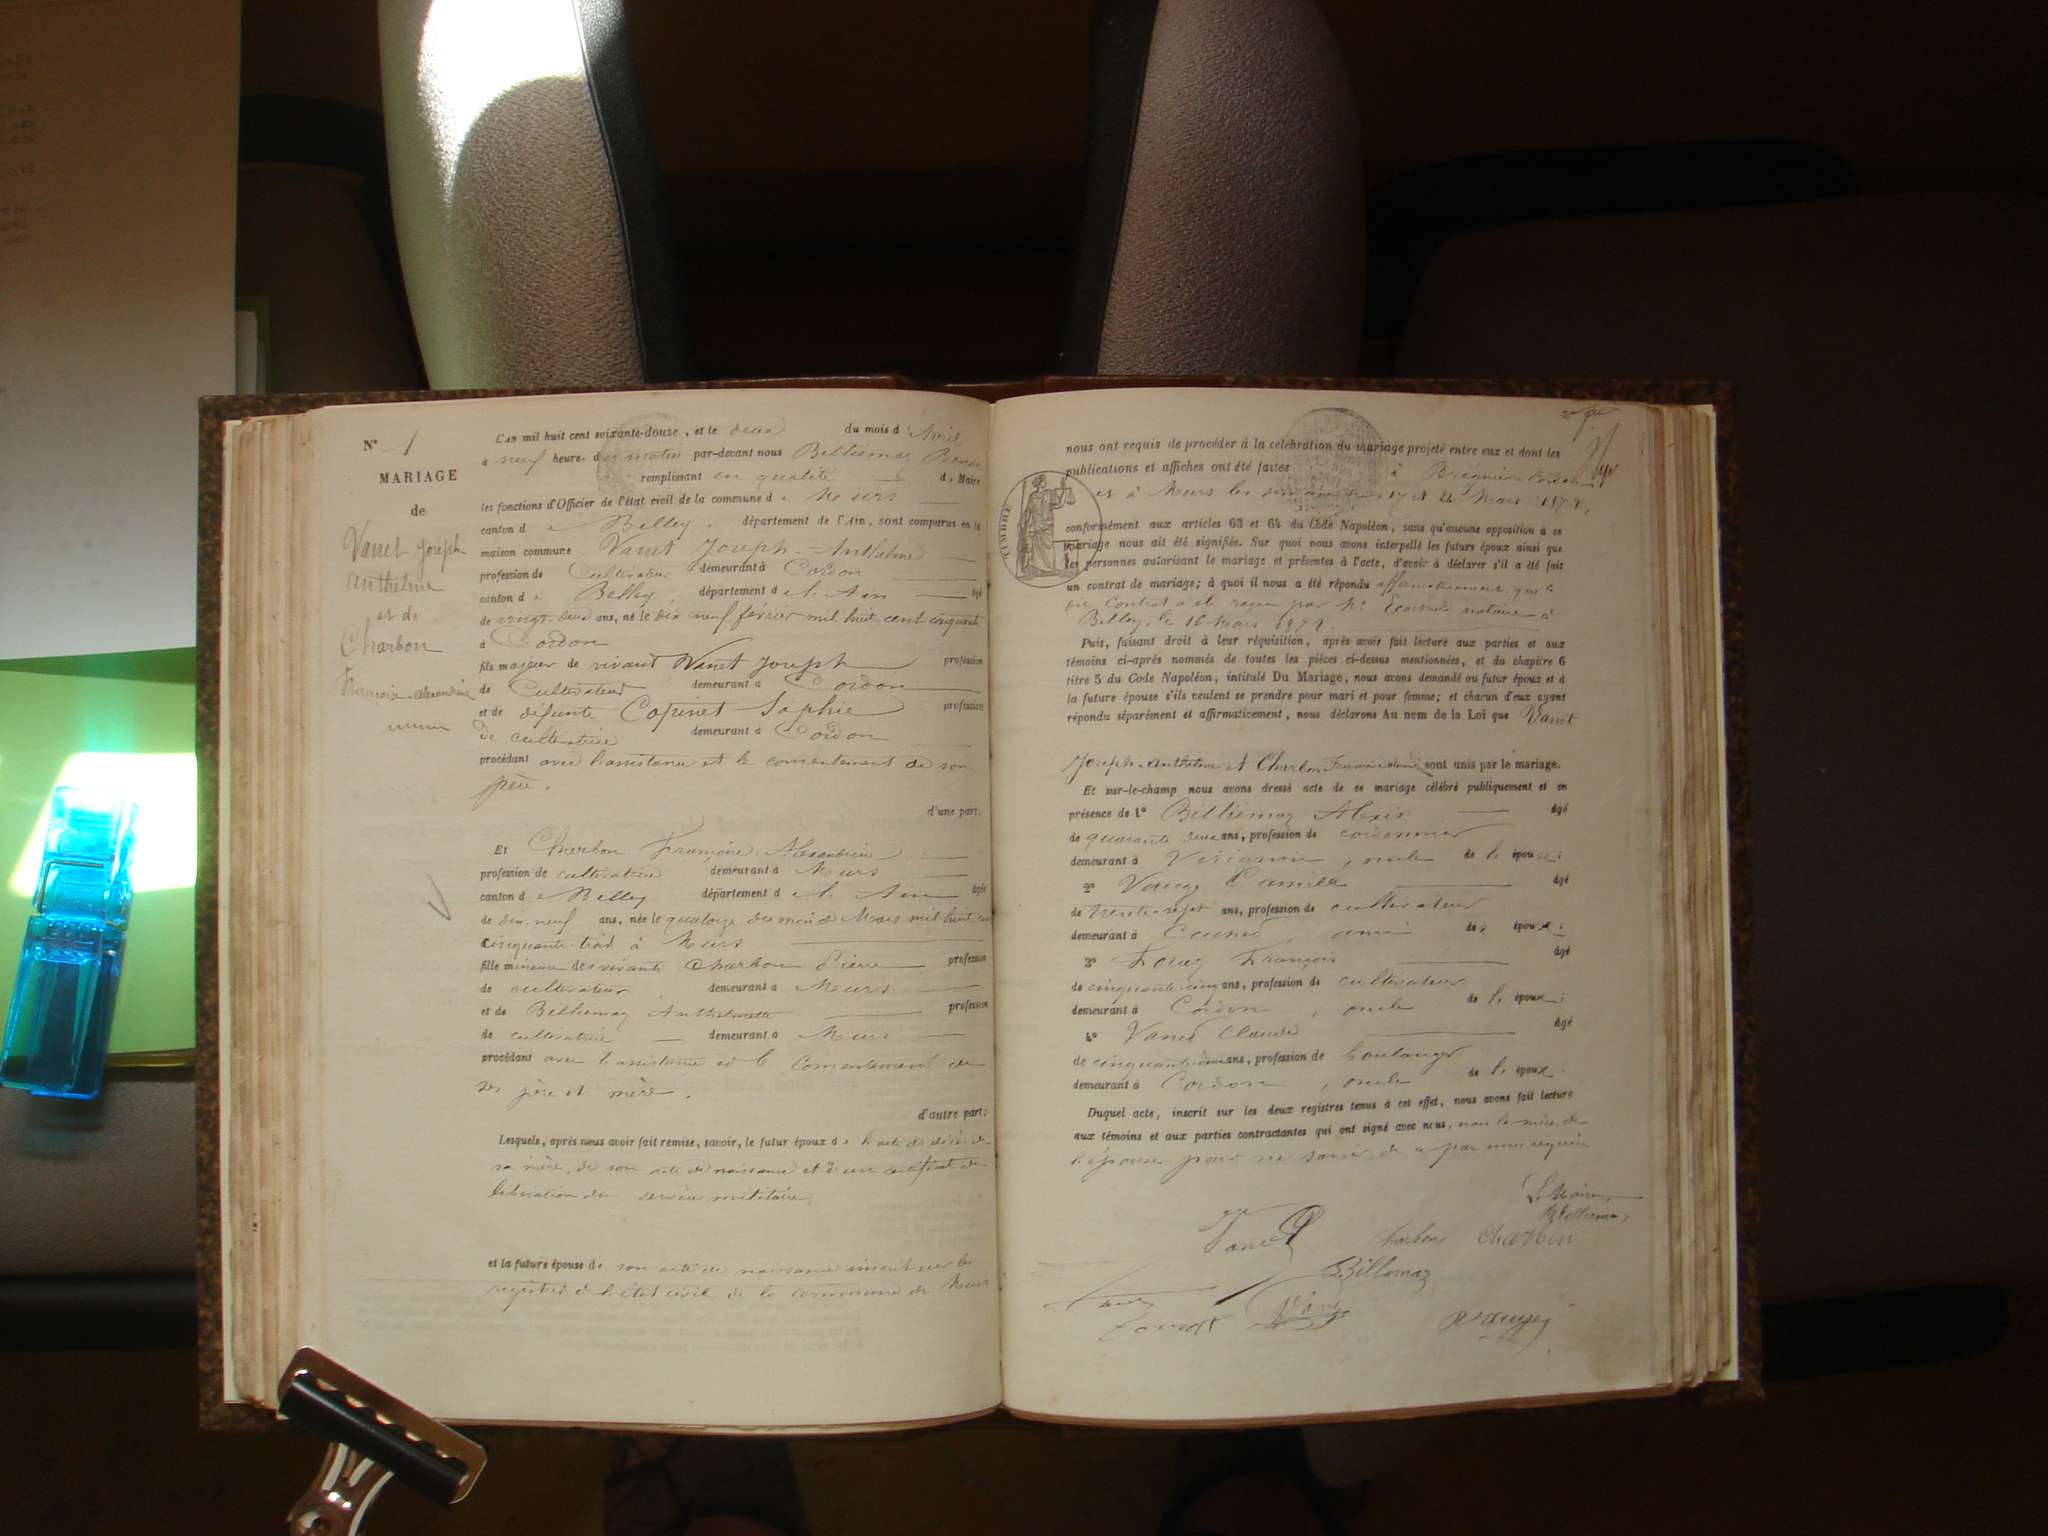 N° 1
MARIAGE
de
Vanet Joseph-
Anthelme
et de
Charbon
Françoise-Alexandrine
L'an mil huit cent soixante-douze, et le deux du mois d'Avril
à neuf heure du matin par-devant nous Billiémaz
remplissant en qualité de Maire
les fonctions d'Officier de l'état civil de la commune de Meurs
canton de Belley, département de l'Ain, sont comparus en la
maison commune Vanet Joseph-Anthelme
profession de Cultivateur demeurant à Cordon
canton de Belley, département de l'Ain âgé
de vingt-deux ans, né le dix neuf février mil huit cent cinquante
à Cordon
fils majeur de vivant Vanet Joseph profession
de Cultivateur demeurant à Cordon
et de défunte Copinet Sophie profession
de cultivatrice demeurant à Cordon
procédant avec l'assistance et le consentement de son
père.
d'une part;
Et Charbon Françoise Alexandrine
profession de cultivatrice demeurant à Meurs
canton de Belley département de l'Ain âgée
de dix-neuf ans, née le quatorze du mois de Mars mil huit cent
cinquante-trois à Meurs
fille mineure des vivants Charbon Pierre profession
de cultivateur demeurant à Meurs
et de Billiemaz Anthelmette profession
de cultivatrice demeurant à Meurs
procédant avec l'assistance et le consentement de
ses père et mère.
d'autre part;
Lesquels, après nous avoir fait remise, savoir, le futur époux de l'acte de décès de
sa mère, de son acte de naissance et d'un certificat de
libération du service militaire,
et la future épouse de son acte de naissance inscrit sur les
registres de l'état civil de la commune de Meurs
nous ont requis de procéder à la célébration du mariage projeté entre eux et dont les
publications et affiches ont été faites à Brégnier Cordon
et à Meurs les dimanches 17 et 24 Mars 1872,
TIMBRE
conformément aux articles 63 et 64 du Code Napoléon, sans qu'aucune opposition à ce
mariage nous ait été signifiée. Sur quoi nous avons interpellé les futurs époux ainsi que
les personnes autorisant le mariage et présentes à l'acte, d'avoir à déclarer s'il a été fait
un contrat de mariage; à quoi il nous a été répondu affirmativement que le
dit Contrat a été reçu par Me notaire à
Belley, le 16 Mars 1872.
Puis, faisant droit à leur réquisition, après avoir fait lecture aux parties et aux
témoins ci-après nommés de toutes les pièces ci-dessus mentionnées, et du chapitre 6
titre 5 du Code Napoléon, intitulé Du Mariage, nous avons demandé au futur époux et à
la future épouse s'ils veulent se prendre pour mari et pour femme; et chacun d'eux ayant
répondu séparément et affirmativement, nous déclarons Au nom de la Loi que Vanet
Joseph-Anthelme et Charbon Françoise sont unis par le mariage.
Et sur-le-champ nous avons dressé acte de ce mariage célébré publiquement et en
présence de 1° Billiémaz Alexis âgé
de quarante deux ans, profession de cordonnier
demeurant à Virignin, oncle de l'épouse;
2° Vauge Camille âgé
de trente-sept ans, profession de cultivateur
demeurant à ami des époux;
3° Foray François âgé
de cinquante-cinq ans, profession de cultivateur
demeurant à Cordon, oncle de l'époux;
4° Vanet Claude âgé
de cinquante ans, profession de boulanger
demeurant à Cordon, oncle de l'époux.
Duquel acte, inscrit sur les deux registres tenus à cet effet, nous avons fait lecture
aux témoins et aux parties contractantes qui ont signé avec nous, non la mère de
l'épouse pour ne savoir, de ce par nous requise
Le Maire
Billiemaz
Vanet
Charbon Charbon
Billemaz
Vauge